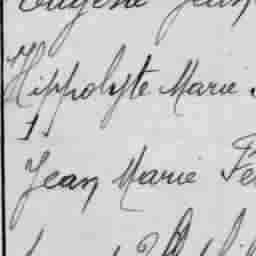 Eugène Jean
Hippolyte Marie
Jean Marie Fé